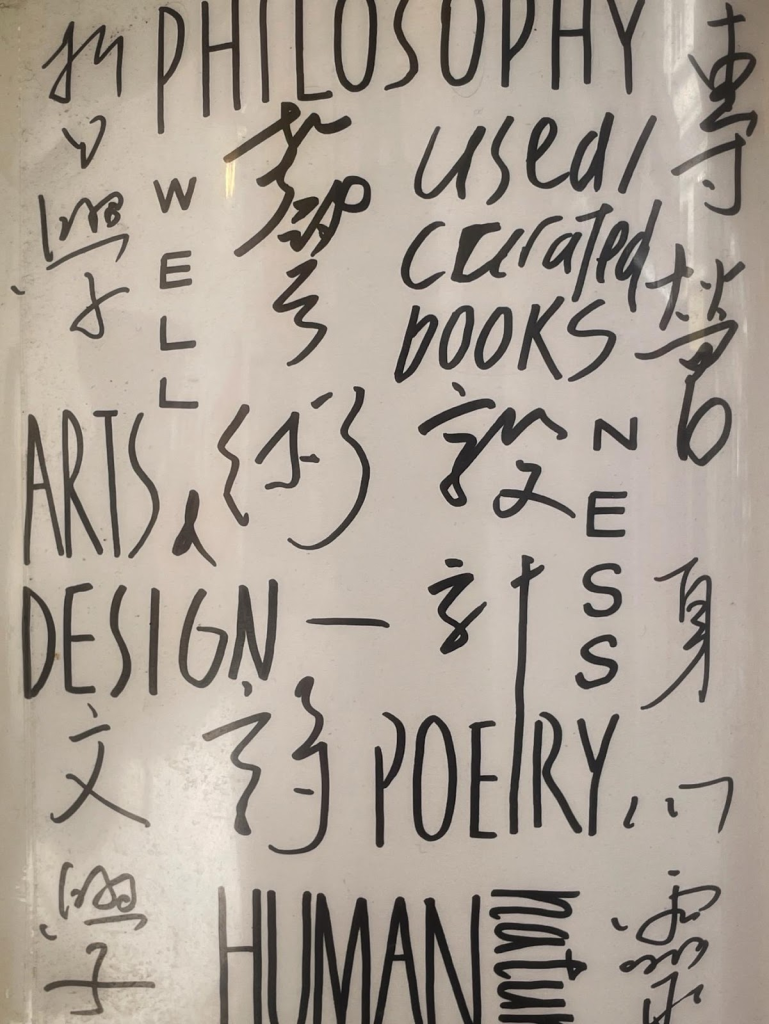 哲學
PHILOSOPHY
專營
WELL
藝術
used/
curated
BOOKS
ARTS &
設計
NESS
DESIGN —
身心靈
文學
詩
POETRY
HUMAN
natur